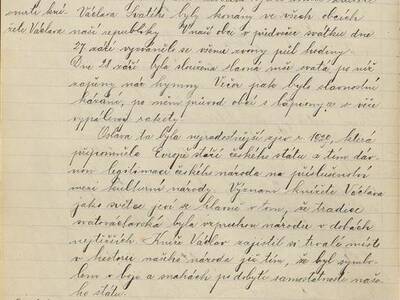 kní. Václava Svatého byly konány ve všech obcích
žete Václava naší republiky. V naší obci v předvečer svátku dne
27 září vyzváněli se všemi zvony půl hodiny.
Dne 28 září byla sloužena slavná mše svatá po níž
zapěny nár. hymny. Večer pak bylo slavnostní
kázání, po něm průvod obcí s lampiony a s věže
vypáleny rakety.
Oslava ta byla nejradostnější zjev r. 1929, která
připomněla Evropě stáří českého státu a tím dáv-
nou legitimaci českého národa na příslušenství
mezi kulturní národy. Význam knížete Václava
jako světce jeví se hlavně v tom, že tradice
svatováclavská byla vzpruhou národu v dobách
nejtěžších. Kníže Václav zajistil si trvalé místo
v historii našeho národa již tím, že byl symbo-
lem v boje a snahách po dobytí samostatnosti naše-
ho státu.